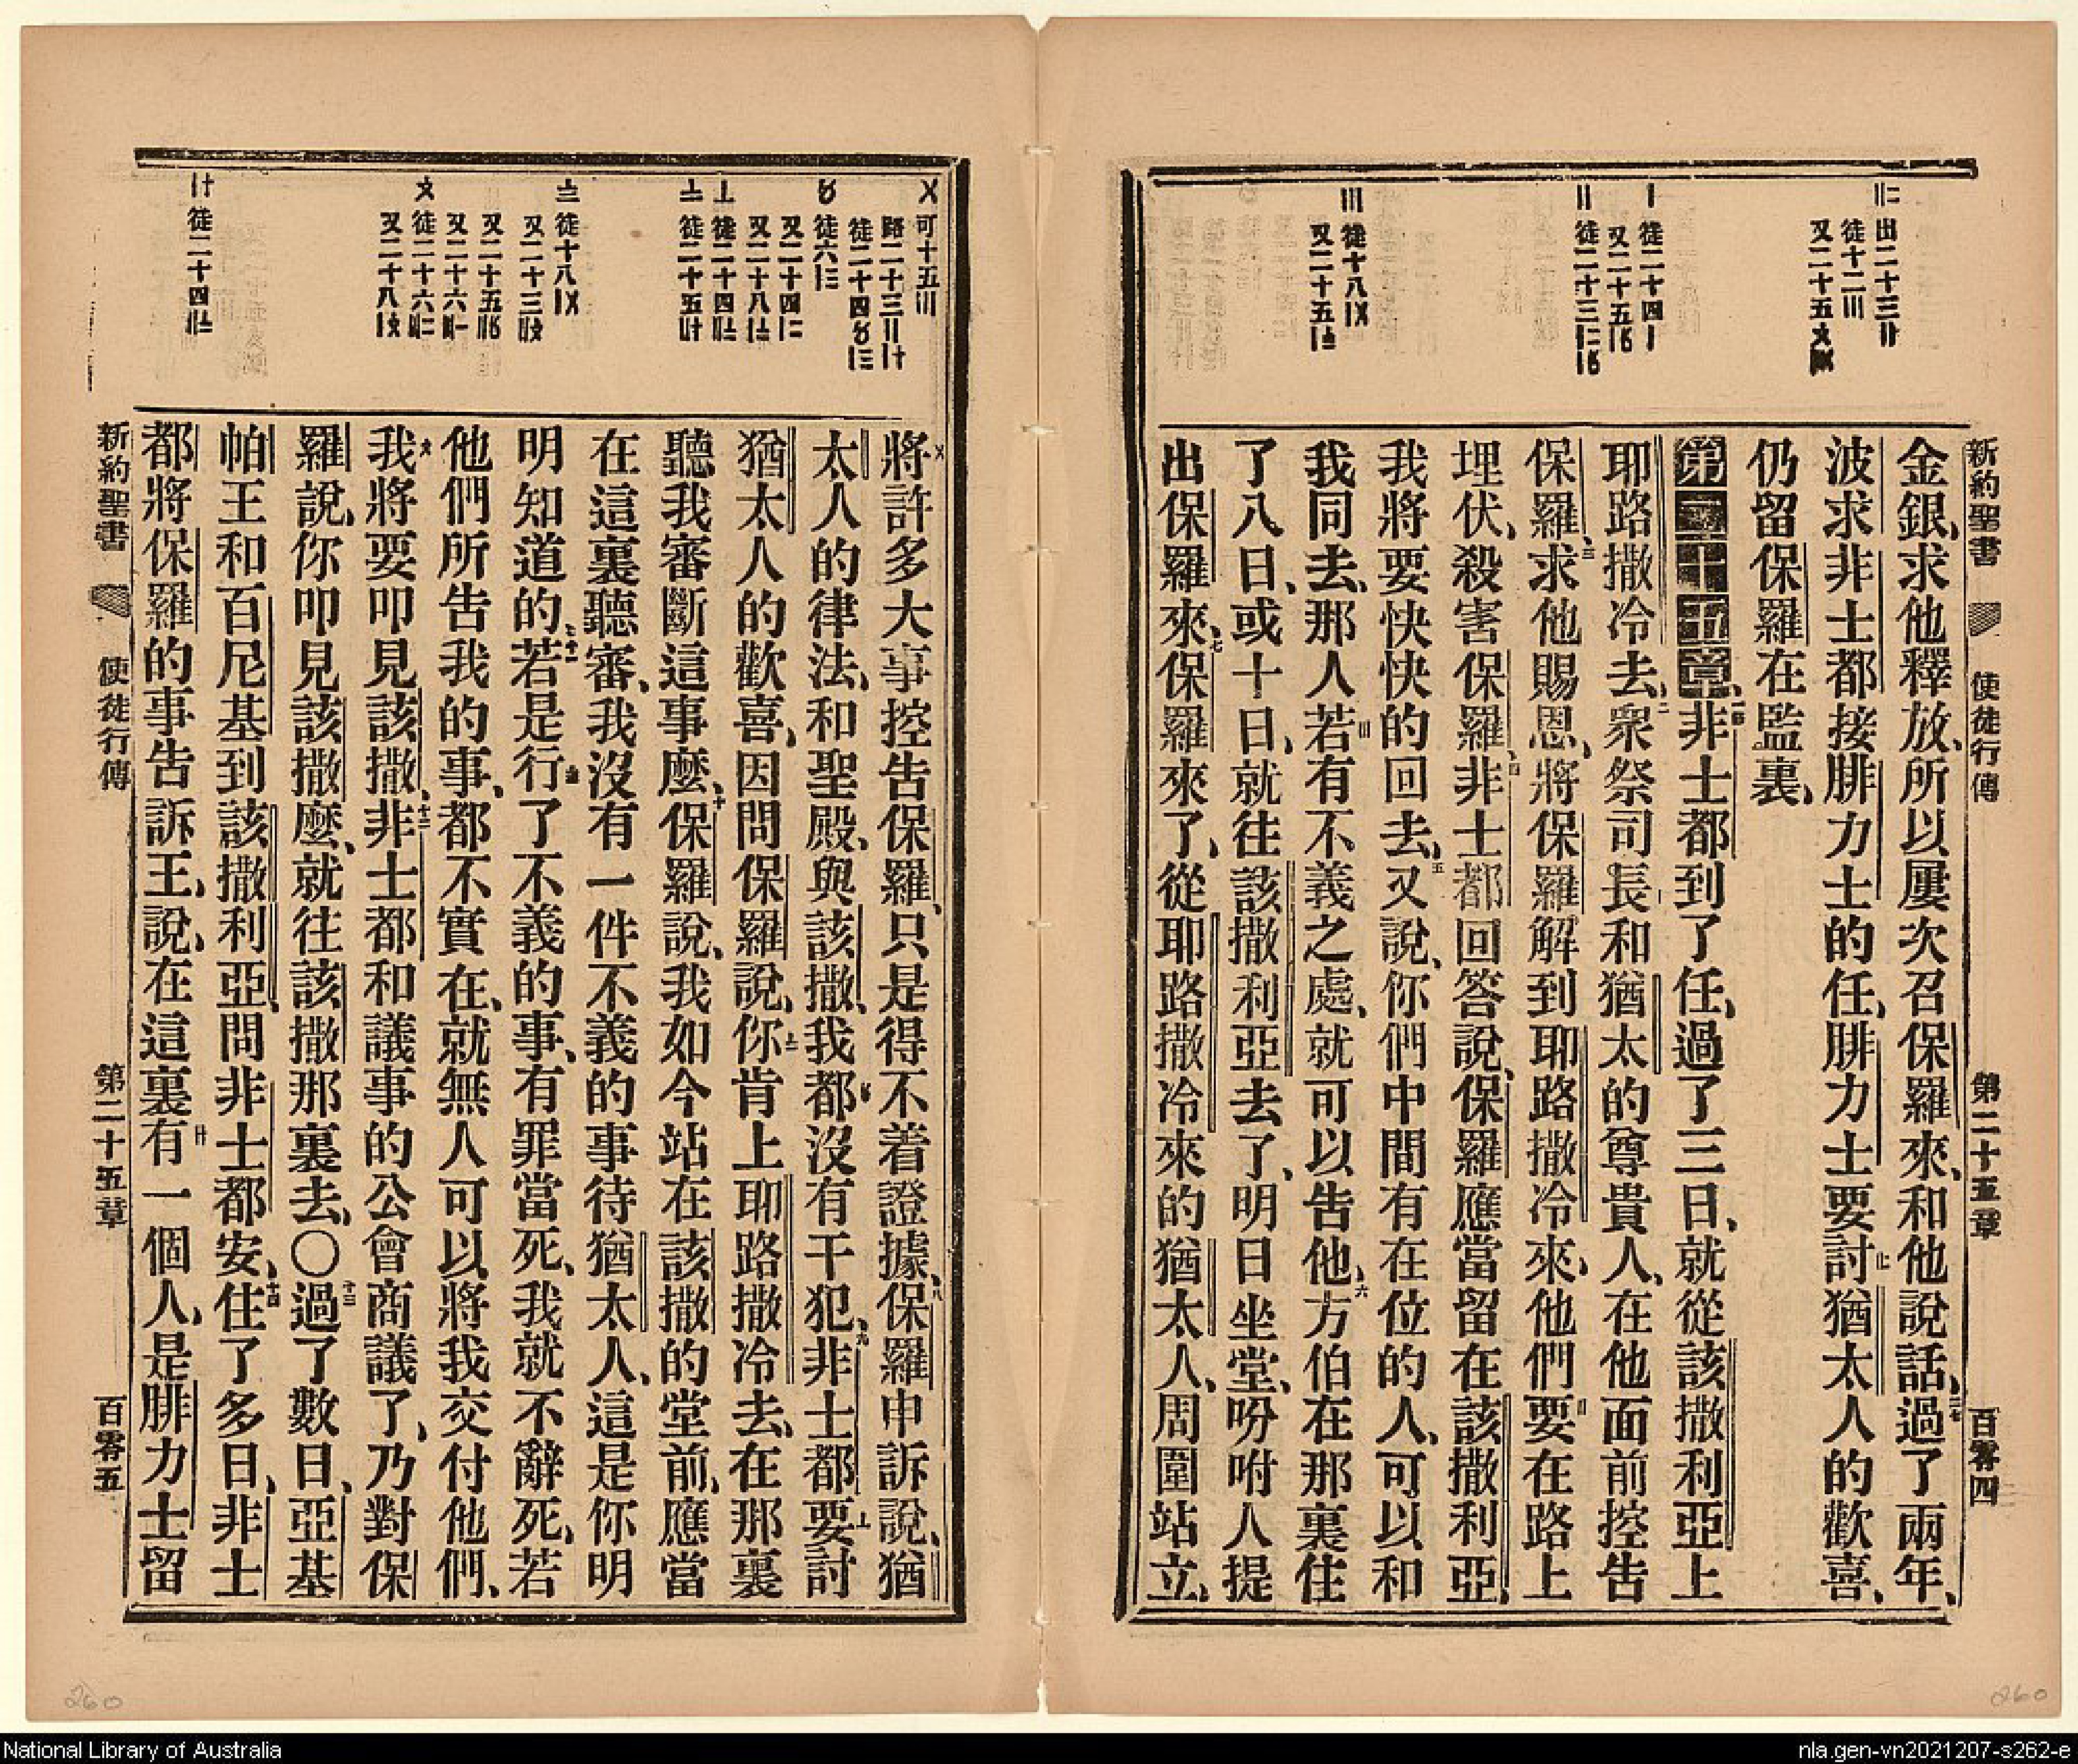 新約聖書 使徒行傳 第二十五章 百零四
〢二 出二十三〢〨
徒十二〣
又二十五
〡 徒二十四〡
又二十五
〢 徒二十三
〣 徒十八
又二十五
金銀、求他釋放、所以屢次召保羅來、和他說話、二七過了兩年、
波求非士都接腓力士的任、腓力士要討猶太人的歡喜、
仍留保羅在監裏、
第二十五章、一節非士都到了任、過了三日、就從該撒利亞上
耶路撒冷去、二衆祭司長和猶太的尊貴人、在他面前控告
保羅、三求他賜恩、將保羅解到耶路撒冷來、他們要在路上
埋伏、殺害保羅、四非士都回答說、保羅應當留在該撒利亞、
我將要快快的回去、五又說、你們中間有在位的人、可以和
我同去、那人若有不義之處、就可以告他、六方伯在那裏住
了八日、或十日、就往該撒利亞去了、明日坐堂、吩咐人提
出保羅來、七保羅來了、從耶路撒冷來的猶太人、周圍站立、
〤 可十五〣
路二十三
徒二十四
徒六
又二十四
又二十八
徒二十四
徒二十五
徒十八
又二十三
又二十五
又二十六
徒二十六
又二十八
徒二十四
將許多大事控告保羅、只是得不着證據、八保羅申訴說、猶
太人的律法、和聖殿、與該撒、我都沒有干犯、九非士都要討
猶太人的歡喜、因問保羅說、你肯上耶路撒冷去、在那裏
聽我審斷這事麼、十保羅說、我如今站在該撒的堂前、應當
在這裏聽審、我沒有一件不義的事待猶太人、這是你明
明知道的、十一若是行了不義的事、有罪當死、我就不辭死、若
他們所告我的事、都不實在、就無人可以將我交付他們、
我將要叩見該撒、十二非士都和議事的公會商議了、乃對保
羅說、你叩見該撒麼、就往該撒那裏去、〇十三過了數日、亞基
帕王和百尼基到該撒利亞、問非士都安、十四住了多日、非士
都將保羅的事告訴王、說、在這裏有一個人、是腓力士留
新約聖書 使徒行傳 第二十五章 百零五
260
260
National Library of Australia
nla.gen-vn2021207-s262-e